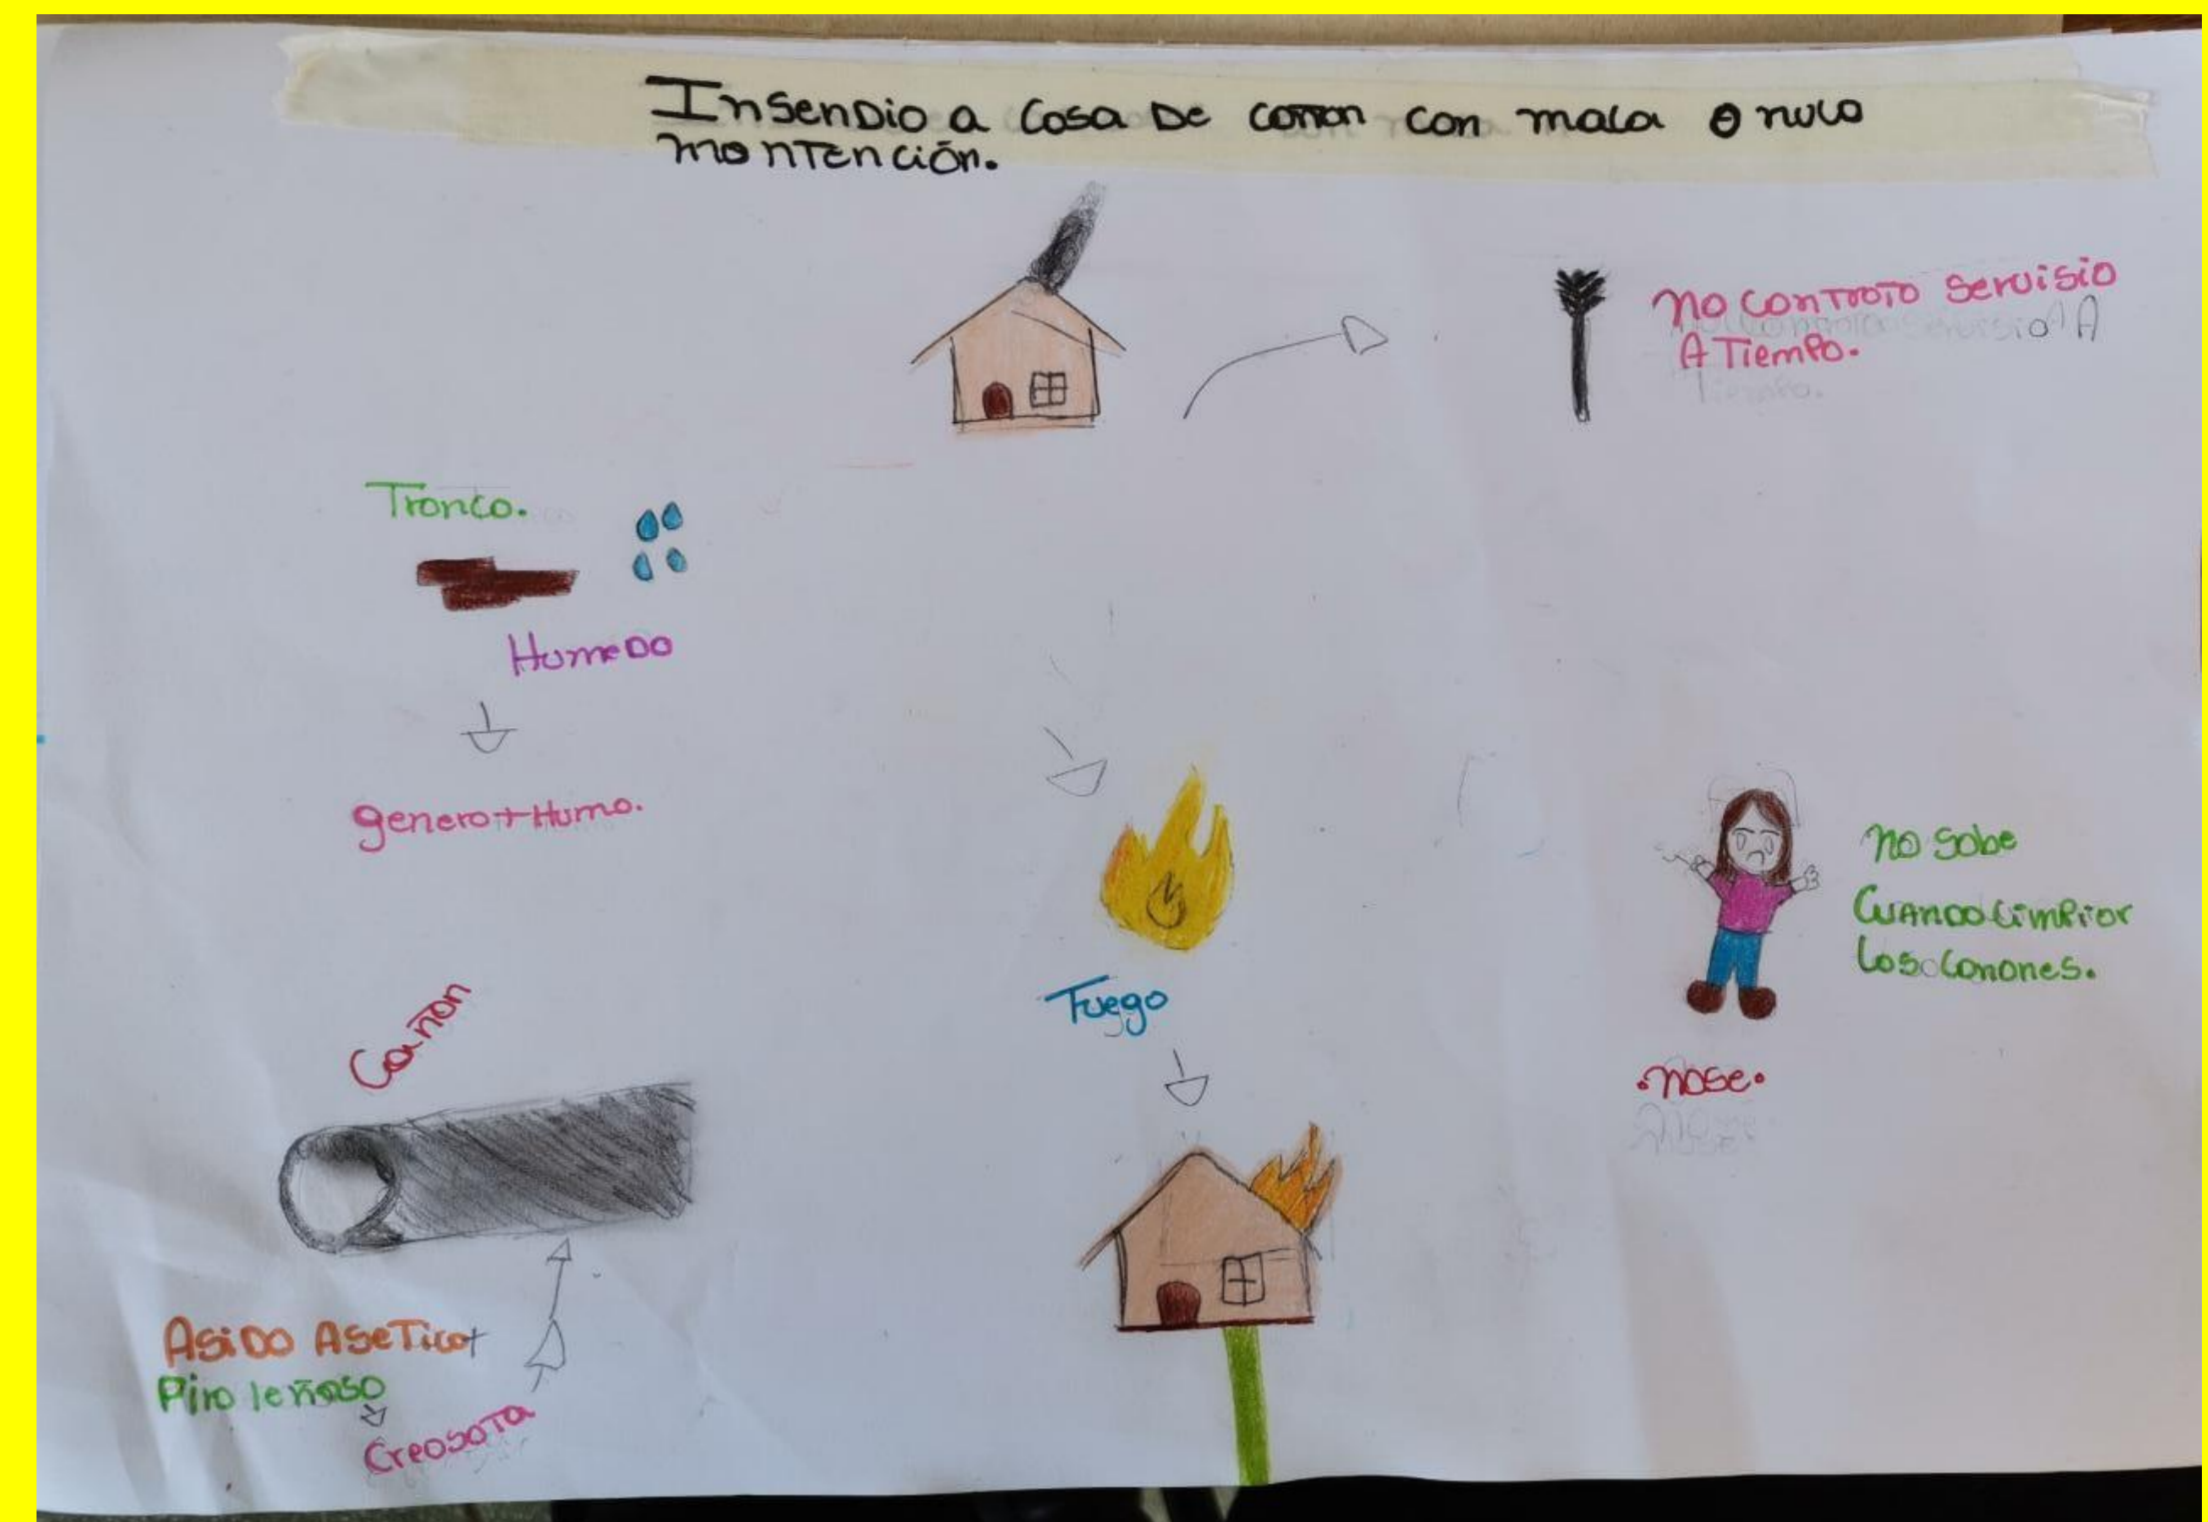 Insendio a casa De cañon con mala o nula
mantención.
no contrato servisio
A Tiempo.
Tronco.
HumeDo
genero+Humo.
no sabe
CUANDO Limpiar
Los Canones.
Cañon
Fuego
.nose.
AsiDo AseTico+
Piro leñoso
Creosota